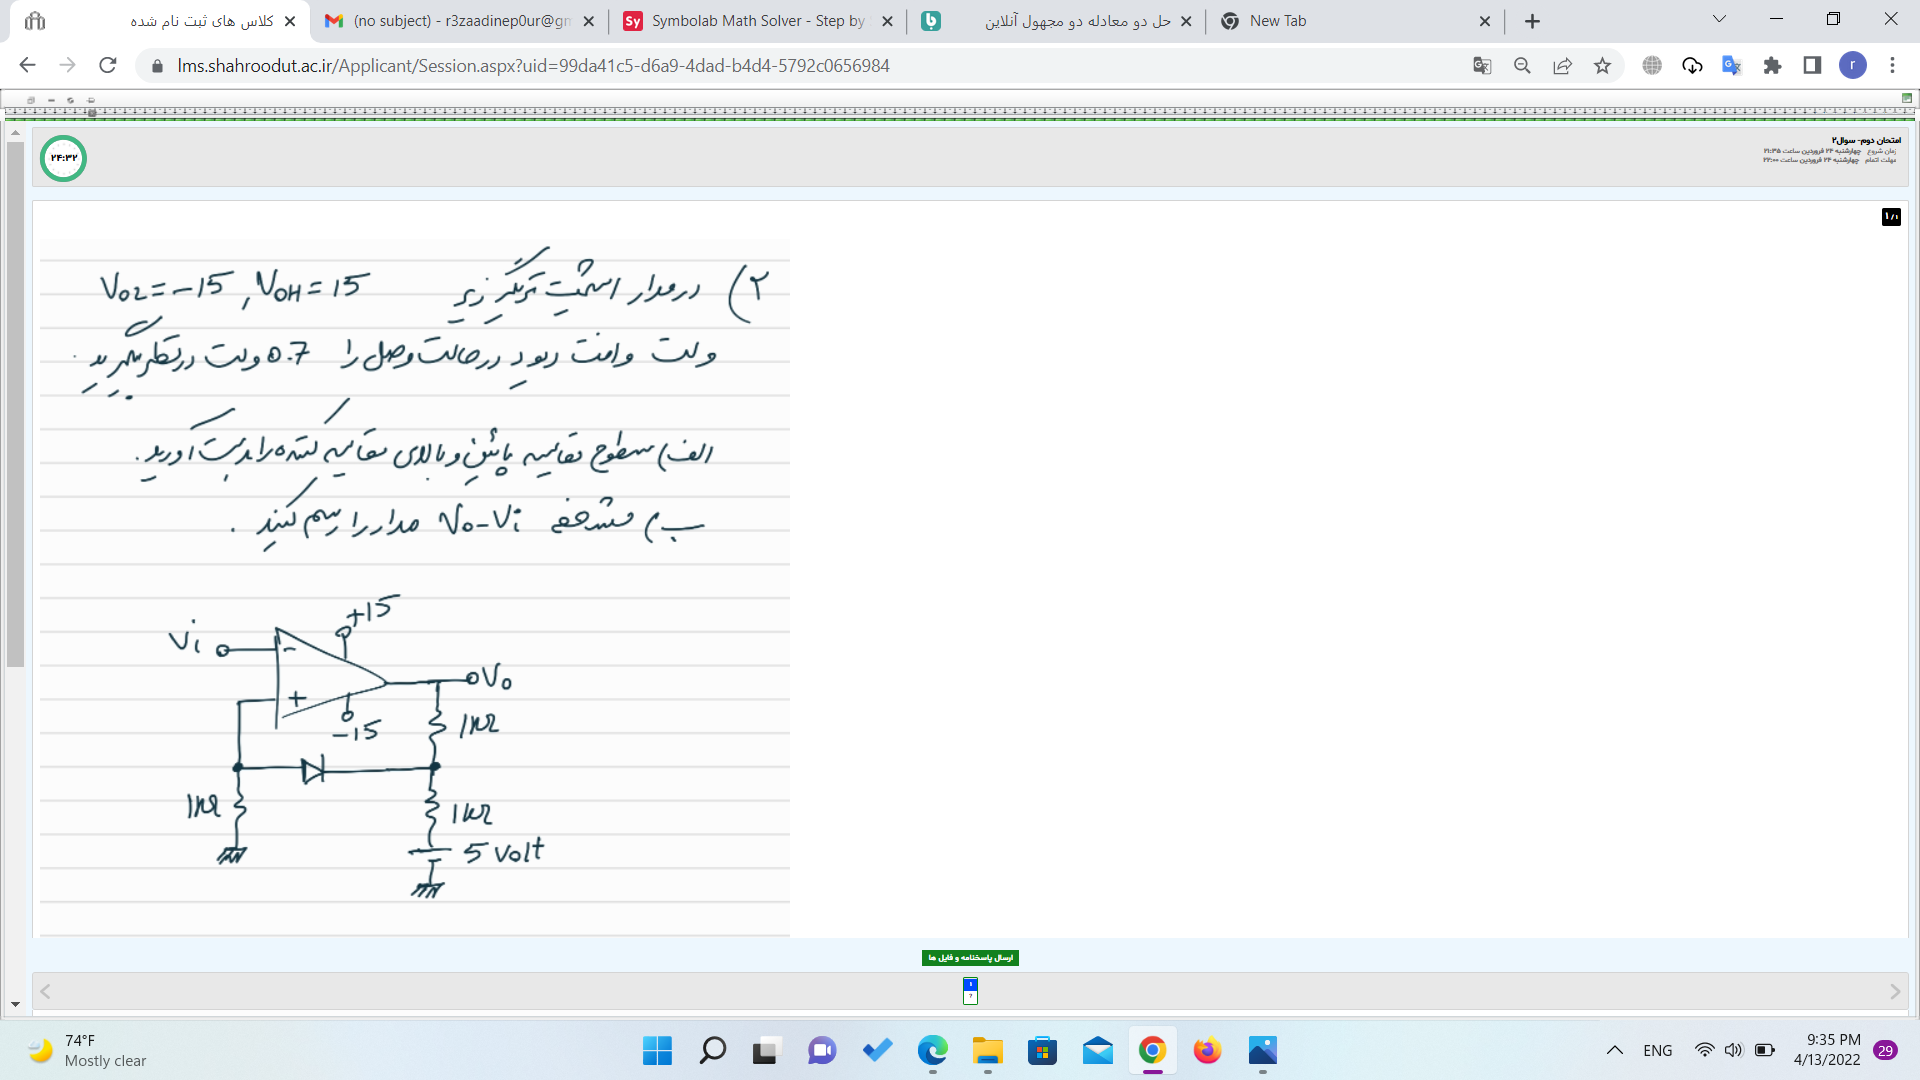 کلاس های ثبت نام شده
(no subject) - r3zaadinep0ur@gn
Symbolab Math Solver - Step by
حل دو معادله دو مجهول آنلاین
New Tab
lms.shahroodut.ac.ir/Applicant/Session.aspx?uid=99da41c5-d6a9-4dad-b4d4-5792c0656984
r
۲۴:۳۲
امتحان دوم- سوال۲
زمان شروع چهارشنبه ۲۴ فروردین ساعت ۲۱:۳۵
مهلت اتمام چهارشنبه ۲۴ فروردین ساعت ۲۲:۰۰
۱/۱
۲) در مدار اشمیت تریگر زیر VOL=-15 , VOH=15
ولت و افت دیود در حالت وصل را 0.7 ولت در نظر بگیرید.
الف) سطوح مقایسه پائین و بالای مقایسه کننده را بدست آورید.
ب) مشخصه Vo-Vi مدار را رسم کنید.
+15
Vi
-
Vo
+
-15
1kΩ
1kΩ
1kΩ
5 Volt
ارسال پاسخنامه و فایل ها
۱
?
74°F
Mostly clear
ENG
9:35 PM
4/13/2022
29